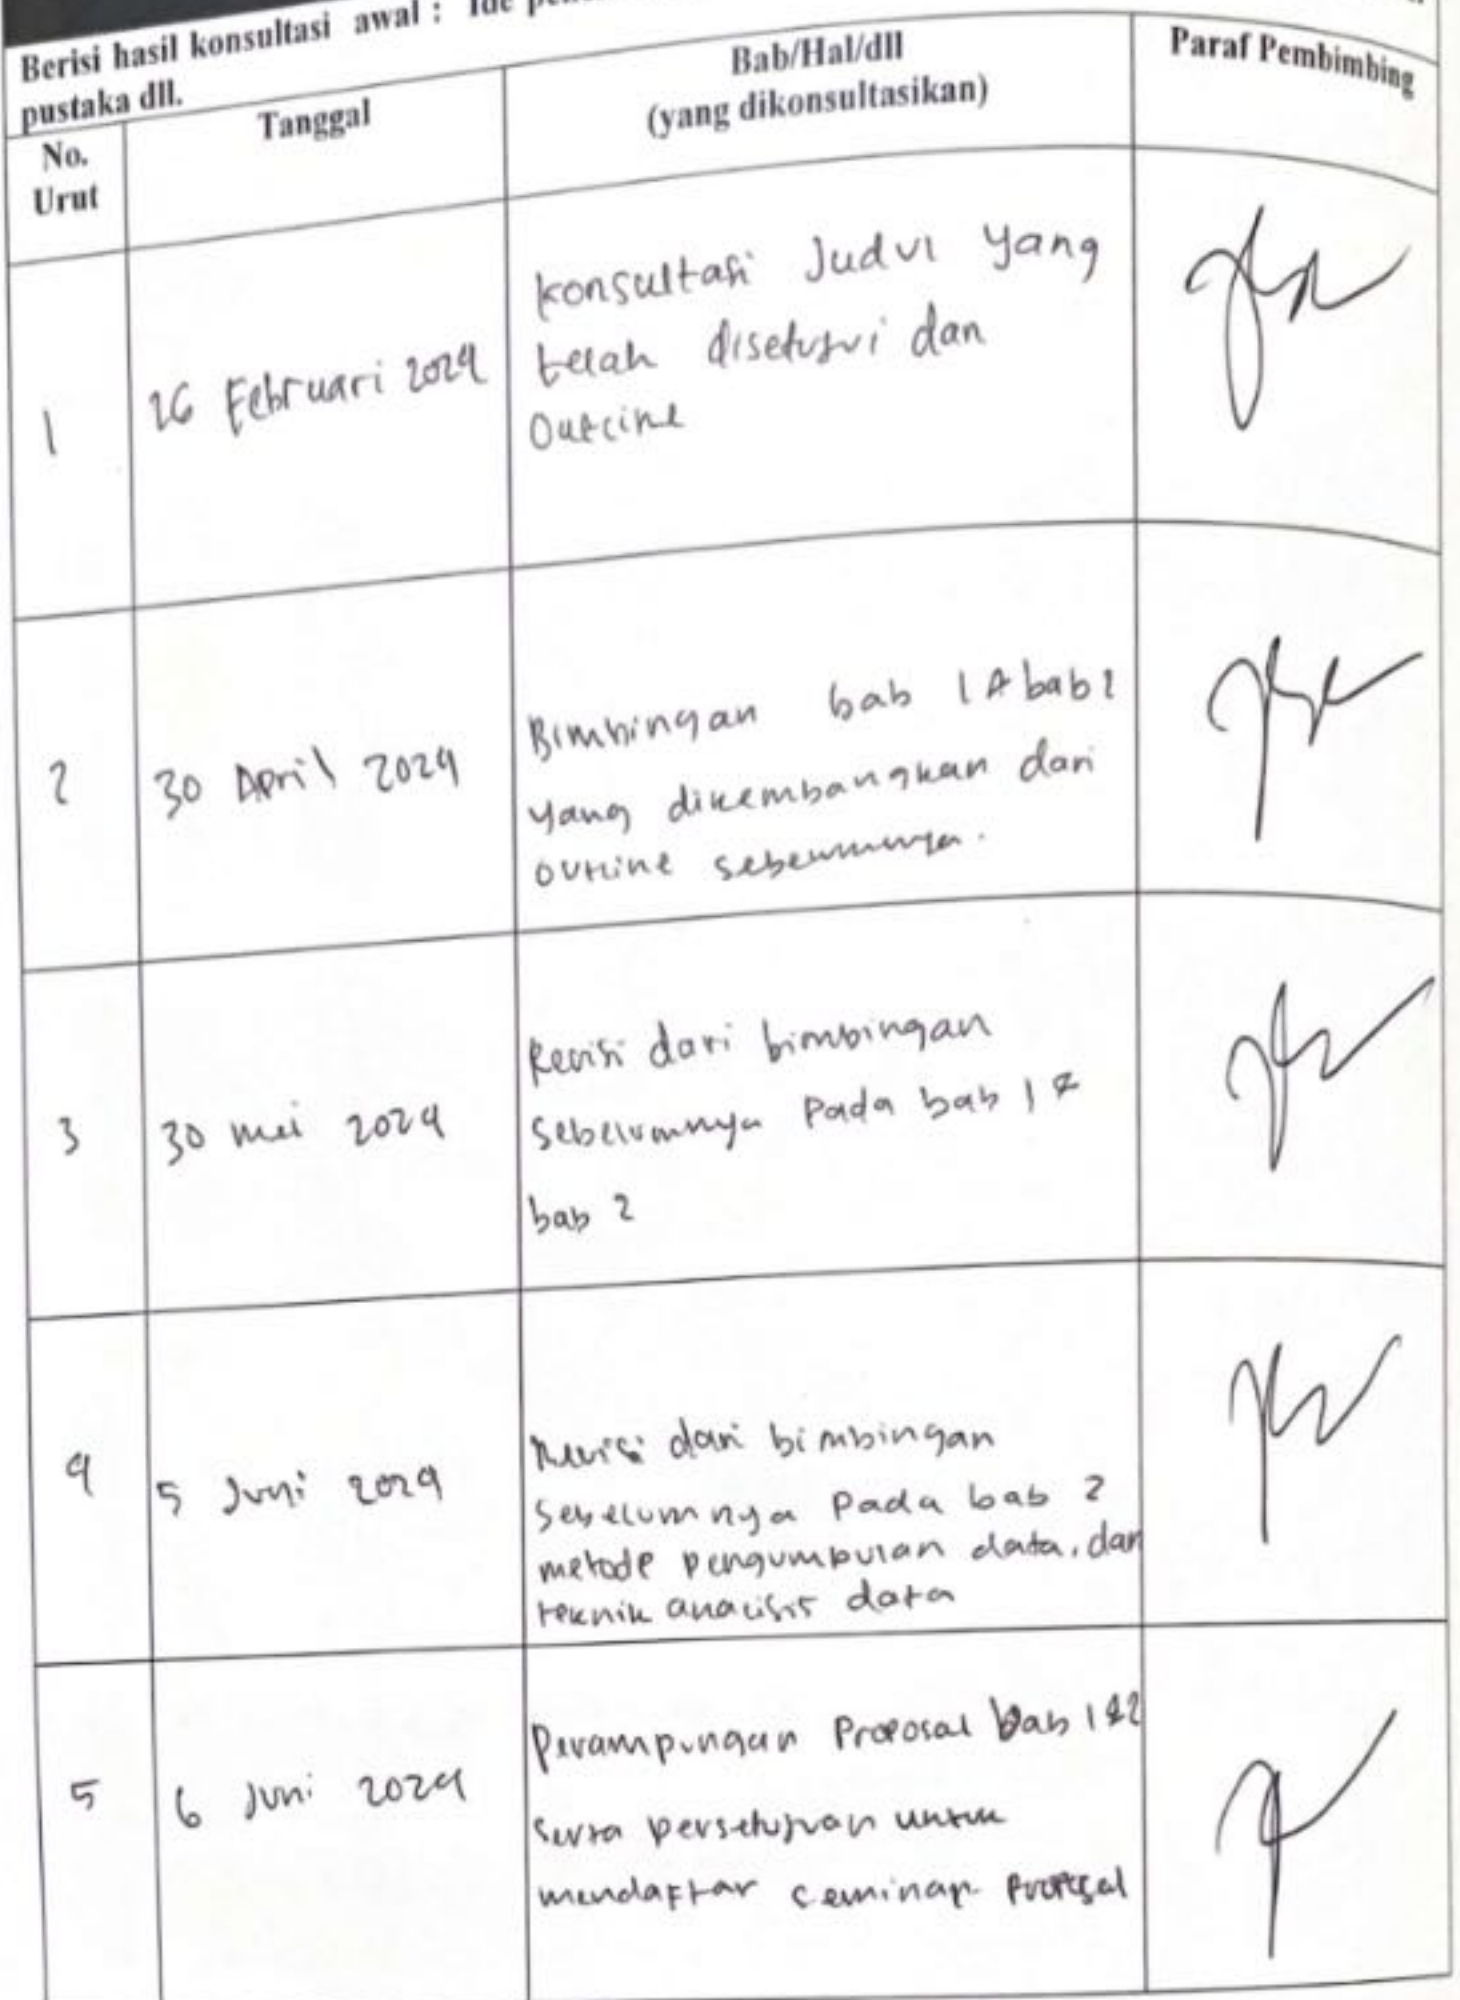 Berisi hasil konsultasi awal : Ide
pustaka dll.
No.
Urut
Tanggal
Bab/Hal/dll
(yang dikonsultasikan)
Paraf Pembimbing
1
26 Februari 2024
konsultasi Judul yang
telah disetujui dan
Outline
2
30 April 2024
Bimbingan bab 1 & bab 2
yang dikembangkan dari
outline sebelumnya.
3
30 mei 2024
Revisi dari bimbingan
sebelumnya Pada bab 1 &
bab 2
4
5 Juni 2024
Revisi dari bimbingan
Sebelumnya Pada bab 2
metode pengumpulan data, dan
teknik analisis data
5
6 Juni 2024
Perampungan Proposal bab 1 & 2
serta persetujuan untuk
mendaftar seminar Proposal